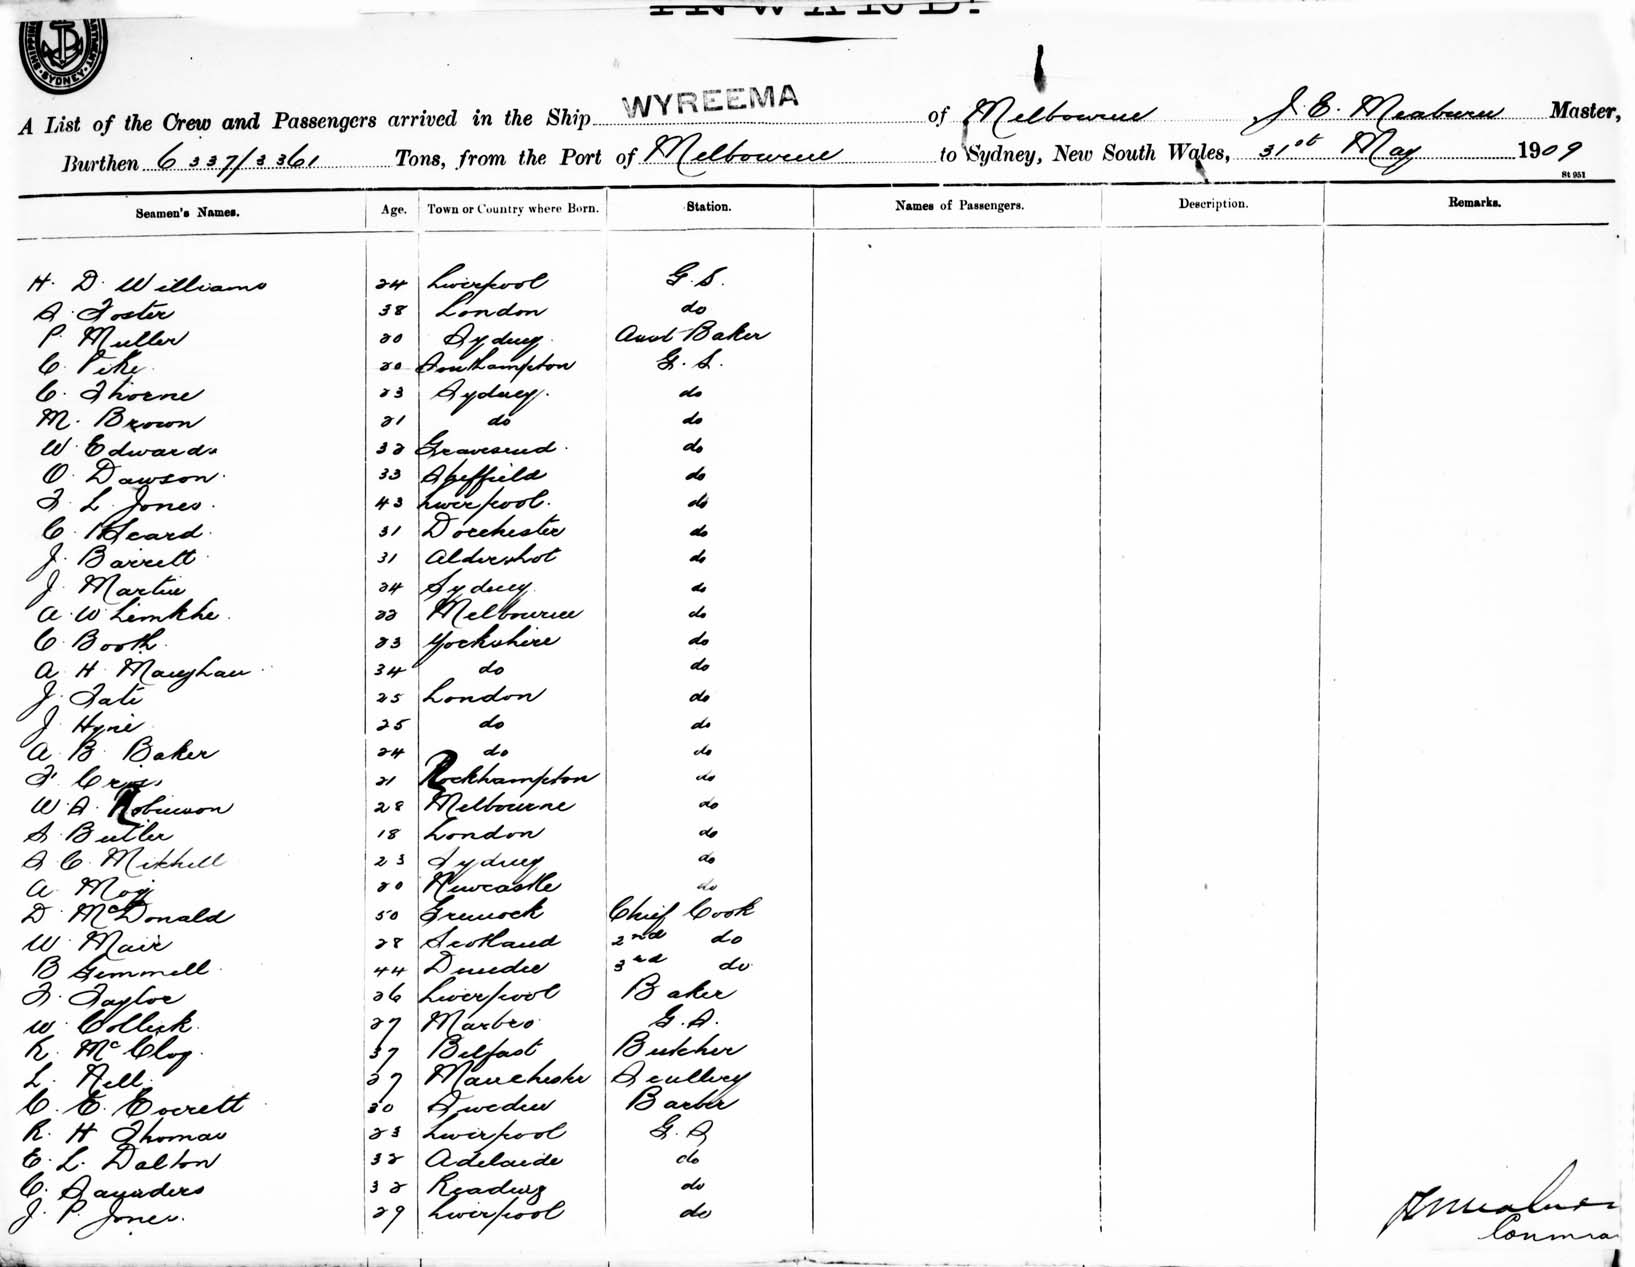 INWARD.
SHIPPING SYDNEY
A List of the Crew and Passengers arrived in the Ship WYREEMA of Melbourne J. E. Meaburn Master,
Burthen 6337/3361 Tons, from the Port of Melbourne to Sydney, New South Wales, 31st May 1909
St 951
Seamen's Names. Age. Town or Country where Born. Station. Names of Passengers. Description. Remarks.
H. D. Williams 24 Liverpool G. S.
S. Foster 38 London do
P. Muller 20 Sydney Asst Baker
C. Pike 20 Southampton G. S.
C. Thorne 23 Sydney. do
M. Brown 21 do do
W. Edwards 32 Gravesend. do
O. Dawson. 33 Sheffield do
F. L. Jones. 43 Liverpool. do
C. Heard. 31 Dorchester do
J. Barrett 31 Aldershot do
J. Martin 24 Sydney do
A. W. Limkhe. 22 Melbourne do
C. Booth. 23 Yorkshire do
A. H. Maughan 34 do do
J. Tate 25 London do
J. Hyne 25 do do
A. B. Baker 24 do do
F. Cross 21 Rockhampton do
W. S. Robinson 28 Melbourne do
S. Butler 18 London do
S. C. Mitchell 23 Sydney do
A. Moy 20 Newcastle do
D. McDonald 50 Greenock Chief Cook
W. Mair 28 Scotland 2nd do
B Gemmell 44 Dundee 3rd do
F. Taylor 26 Liverpool Baker
W. Collick. 27 Marbro G. S.
R. McCloy. 37 Belfast Butcher
L. Nell. 27 Manchester Scullery
C. E. Everett 30 Sweden Barber
R. H Thomas 23 Liverpool G. S
E. L. Dalton 32 Adelaide do
C. Saunders 32 Reading do
J. P. Jones. 29 Liverpool do